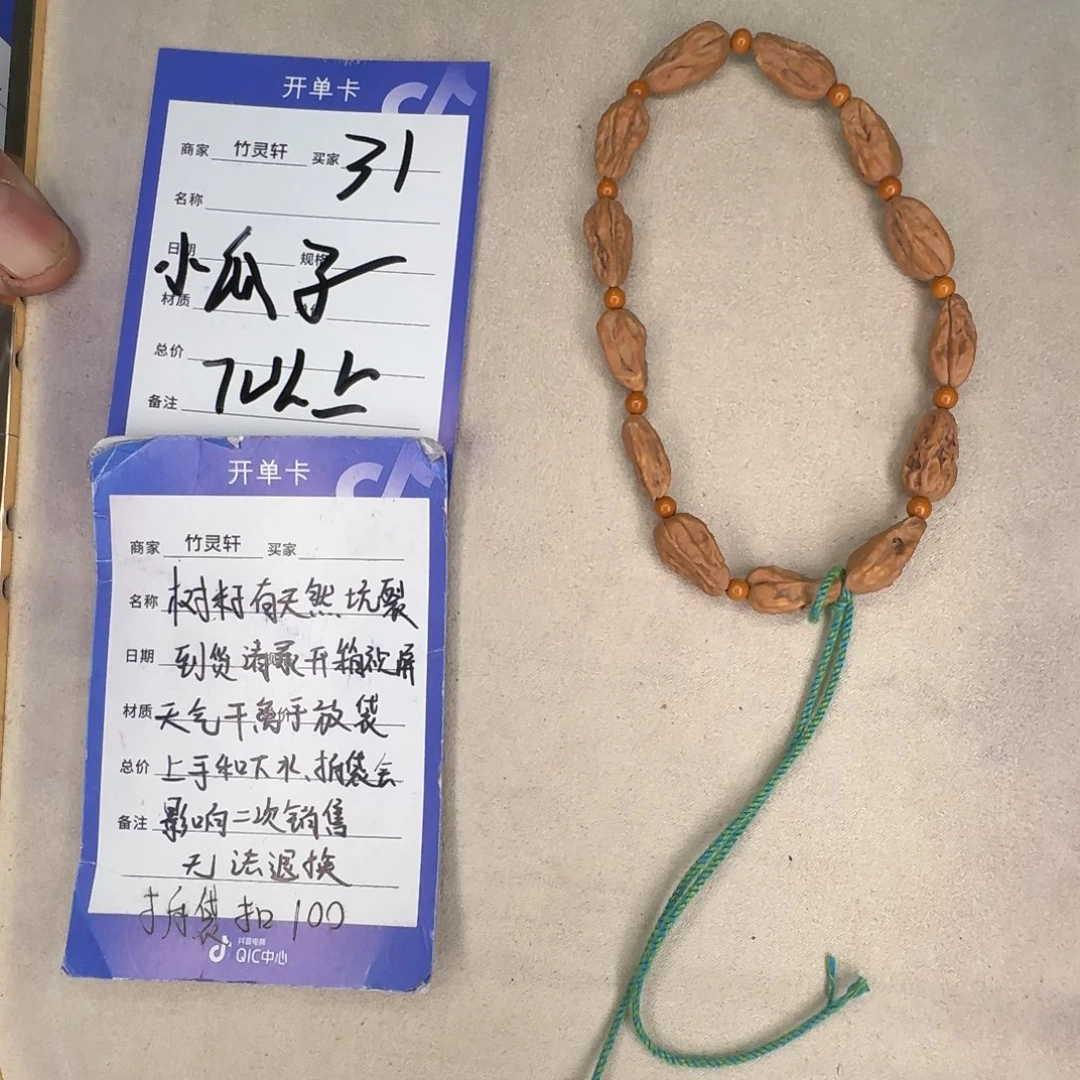 开单卡
商家 竹灵轩 买家 31
名称
日期 规格
小瓜子
材质
总价 7以上
备注
开单卡
商家 竹灵轩 买家
名称 树籽有天然坑裂
日期 到货请录开箱视屏
材质 天气干离手放袋
总价 上手和下水、拆袋会
备注 影响二次销售
无法退换
拆袋扣100
抖音电商
QIC中心